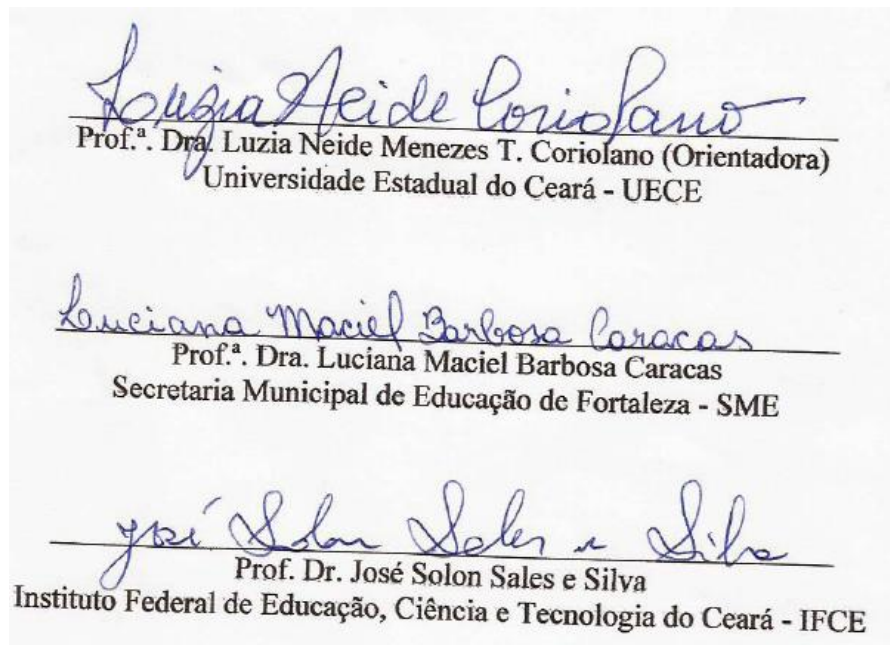 Luzia Neide Coriolano
Prof.ª. Dra. Luzia Neide Menezes T. Coriolano (Orientadora)
Universidade Estadual do Ceará - UECE
Luciana Maciel Barbosa Caracas
Prof.ª. Dra. Luciana Maciel Barbosa Caracas
Secretaria Municipal de Educação de Fortaleza - SME
José Solon Sales e Silva
Prof. Dr. José Solon Sales e Silva
Instituto Federal de Educação, Ciência e Tecnologia do Ceará - IFCE